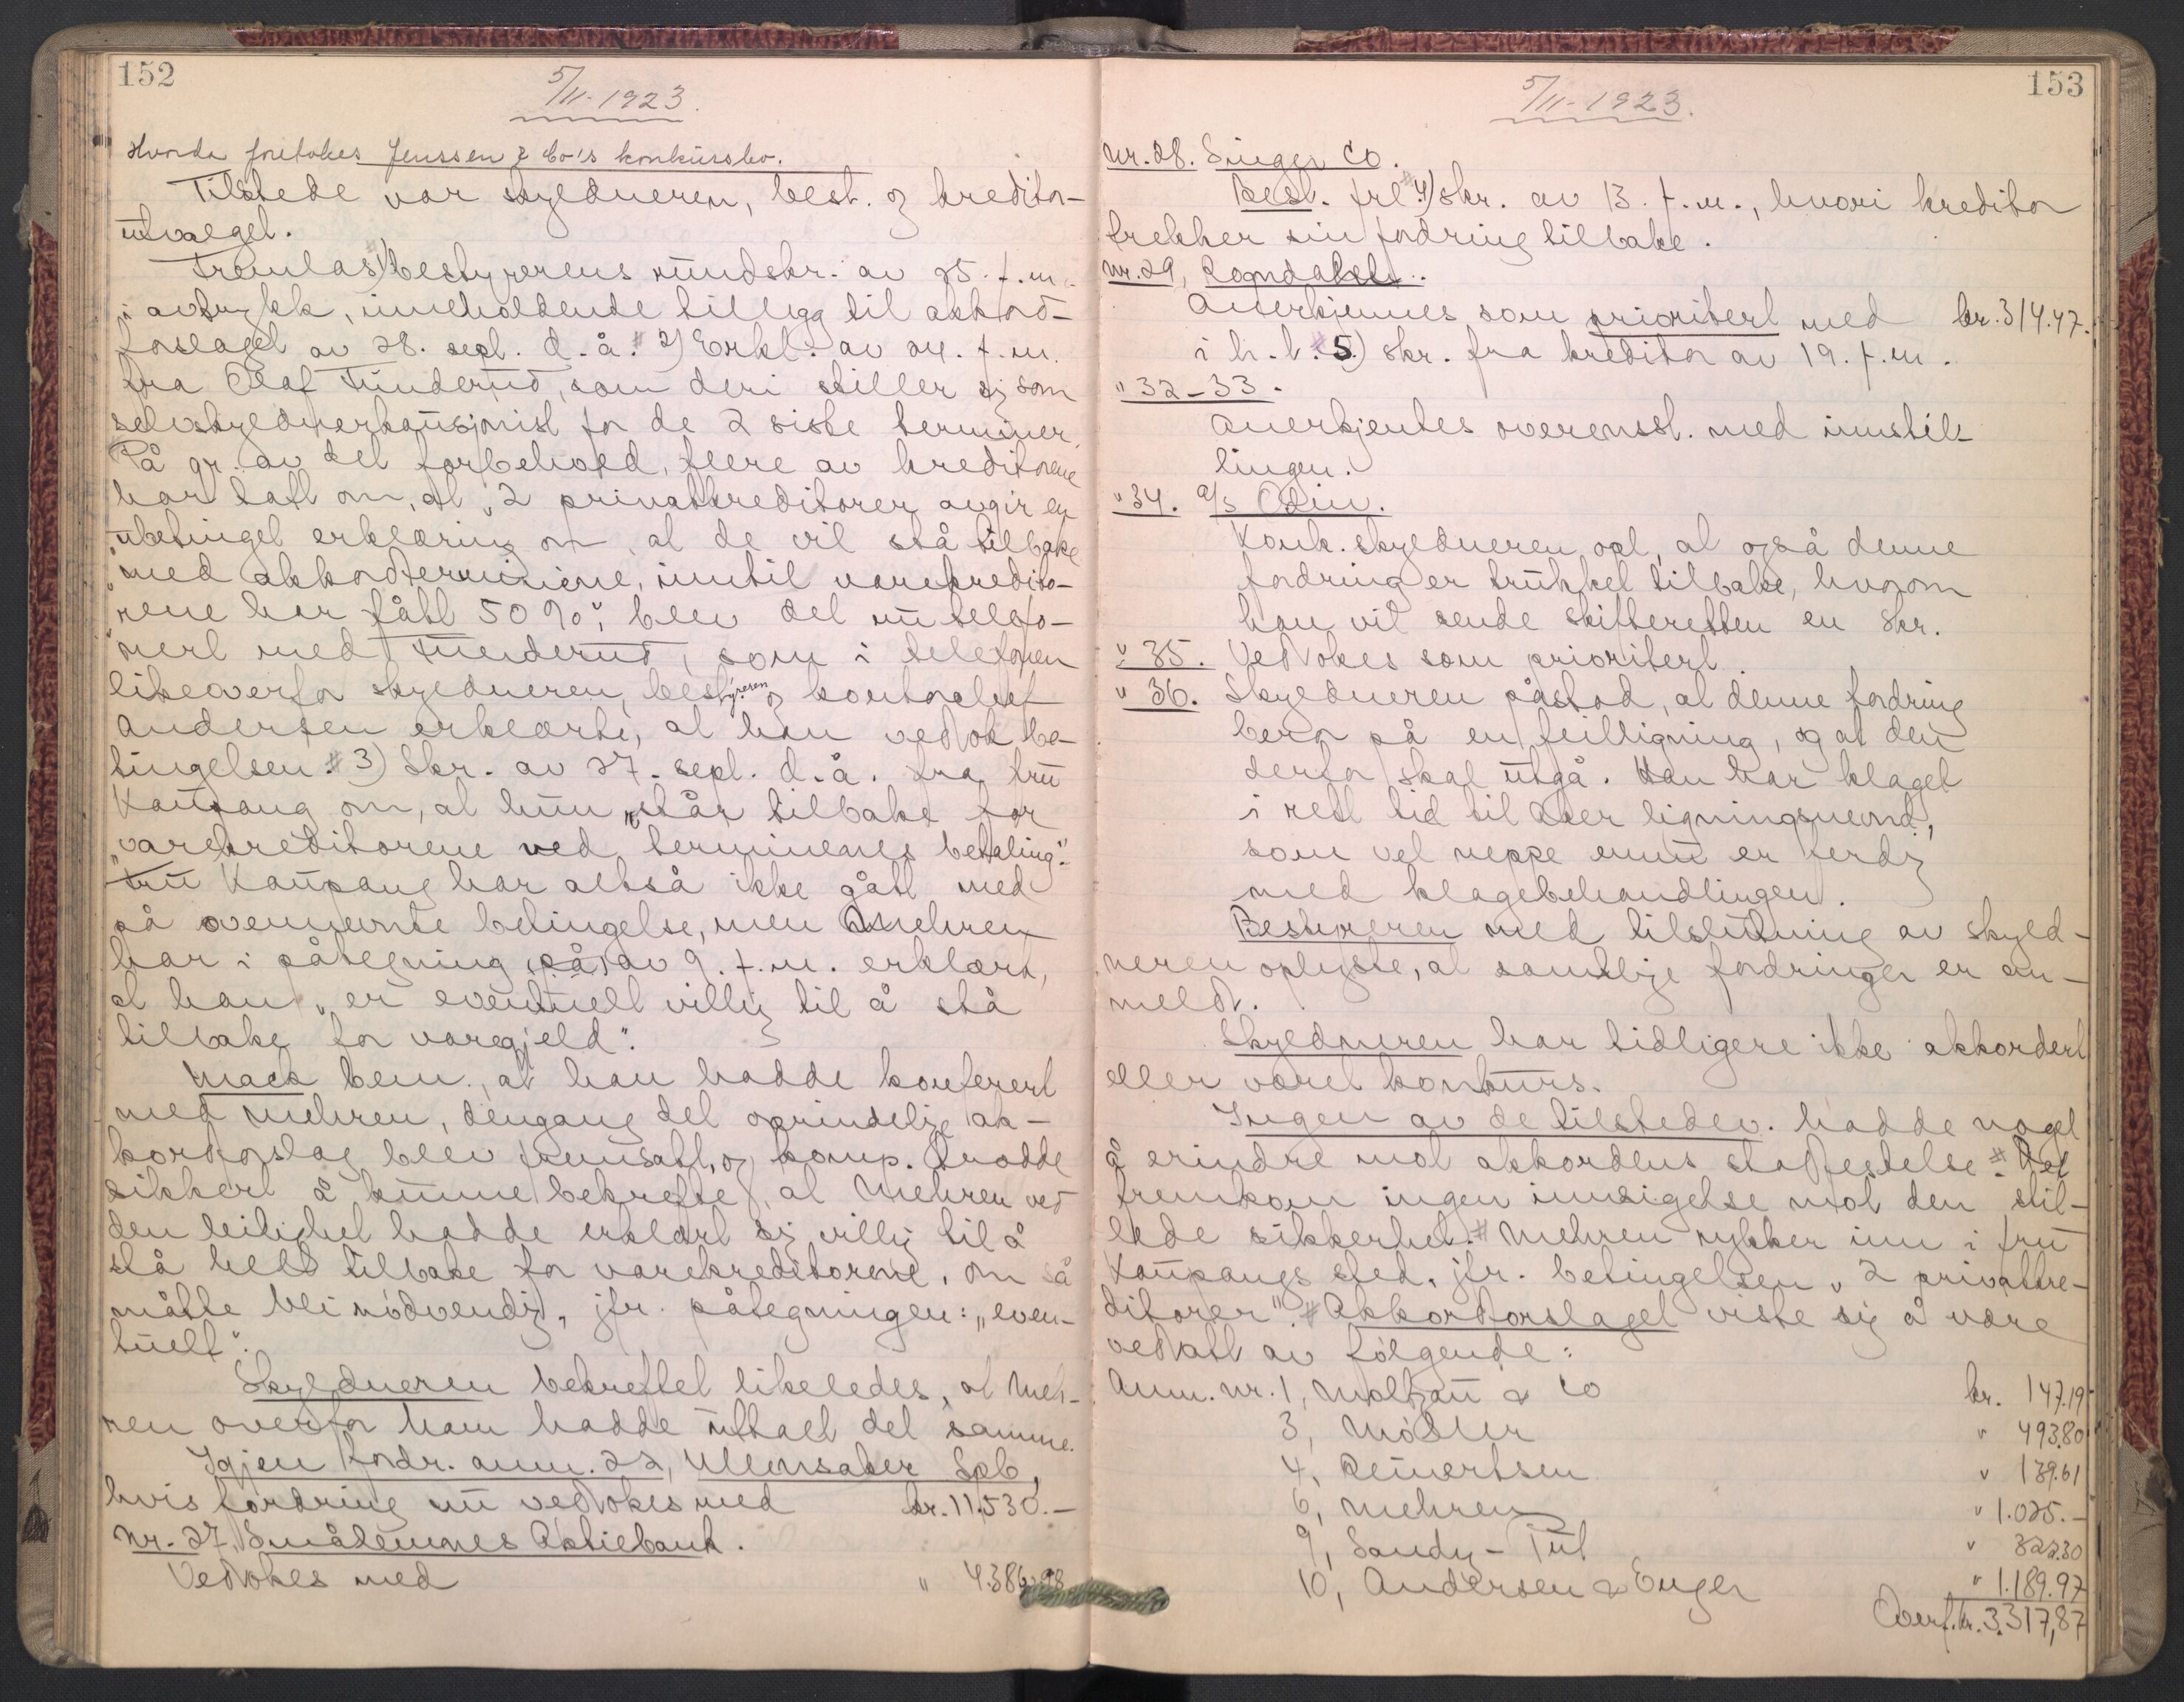 152
5/11-1923.
Hvorda foretokes Jenssen & Co's konkursbo.
Tilstede var skyldneren, best. og kreditor-
utvalget.
Fremlas 1) bestyrerens rundskr. av 25. f.m.
i avtrykk, inneholdende tillegg til akkord-
forslaget av 28. sept. d.å. # 2) Erkl. av 24. f.m.
fra Olaf Tünderud, som deri stiller sig som
selvskyldnerkausjonist for de 2 siste terminer.
På gr. av det forbehold, flere av kreditorene
har tatt om, at "2 privatkreditorer avgir en
ubetinget erklæring om, at de vil stå tilbake
"med akkordterminene, inntil varekredito-
"rene har fått 50 %", blev det nu telefo-
nert med Tünderud, som i telefonen
likeoverfor skyldneren, bestyreren og kontorchef
Andersen erklærte, at han vedtok be-
tingelsen. # 3) Skr. av 27. sept. d.å. fra fru
Kaupang om, at hun "står tilbake for
"varekreditorene ved terminenes betaling."
Fru Kaupang har altså ikke gått med
på ovennevnte betingelse, men Mehren
har i påtegning (på) av 9. f.m. erklært,
at han "er eventuelt villig til å stå
tilbake for varegjeld".
Mack bem., at han hadde konferert
med Mehren, dengang det oprindelige ak-
kordforslag blev fremsatt, og komp. trodde
sikkert å kunne bekrefte, at Mehren ved
den leilighet hadde erklært sig villig til å
stå helt tilbake for varekreditorene, om så
måtte bli nødvendig, jfr. påtegningen: "even-
tuelt".
Skyldneren bekreftet likeledes, at Meh-
ren overfor ham hadde uttalt det samme.
Igjen fordr. anm. 22, Ullensaker Spb,
hvis fordring nu vedtokes med kr. 11.530.-
Nr. 27, Smålenenes Aktiebank.
Vedtokes med " 4.386.98
153
5/11-1923.
Nr. 28. Singer Co.
Best. frl. # 4) skr. av 13. f.m., hvori kreditor
trekker sin fordring tilbake.
Nr. 29,
Anerkjennes som prioritert med kr. 314.47.
i h. t. # 5) skr. fra kreditor av 19. f.m.
" 32-33.
Anerkjentes overensst. med innstil-
lingen.
" 34. A/S Odin.
Konk.skyldneren opl., at også denne
fordring er trukket tilbake, hvorom
han vil sende skifteretten en skr.
" 35. Vedtokes som prioritert.
" 36. Skyldneren påstod, at denne fordring
bero på en feilligning, og at den
derfor skal utgå. Han har klaget
i rett tid til Aker ligningsnevnd,
som vel neppe ennu er ferdig
med klagebehandlingen.
Bestyreren med tilslutning av skyld-
neren oplyste, at samtlige fordringer er an-
meldt.
Skyldneren har tidligere ikke akkordert
eller været konkurs.
Ingen av de tilstedev. hadde noget
å erindre mot akkordens stadfestelse. # Det
fremkom ingen innsigelse mot den stil-
lede sikkerhet. # Mehren rykker inn i fru
Kaupangs sted, jfr. betingelsen "2 privatkre-
ditorer". # Akkordforslaget viste sig å være
vedtatt av følgende:
Anm. nr. 1, Moltzau & Co kr. 147.19
3, Møller " 493.80
4, Reinertsen " 139.61
6, Mehren " 1.025.-
9, Sandy-Tut " 322.30
10, Andersen & Enger " 1.189.97
Overf. kr. 3.317,87